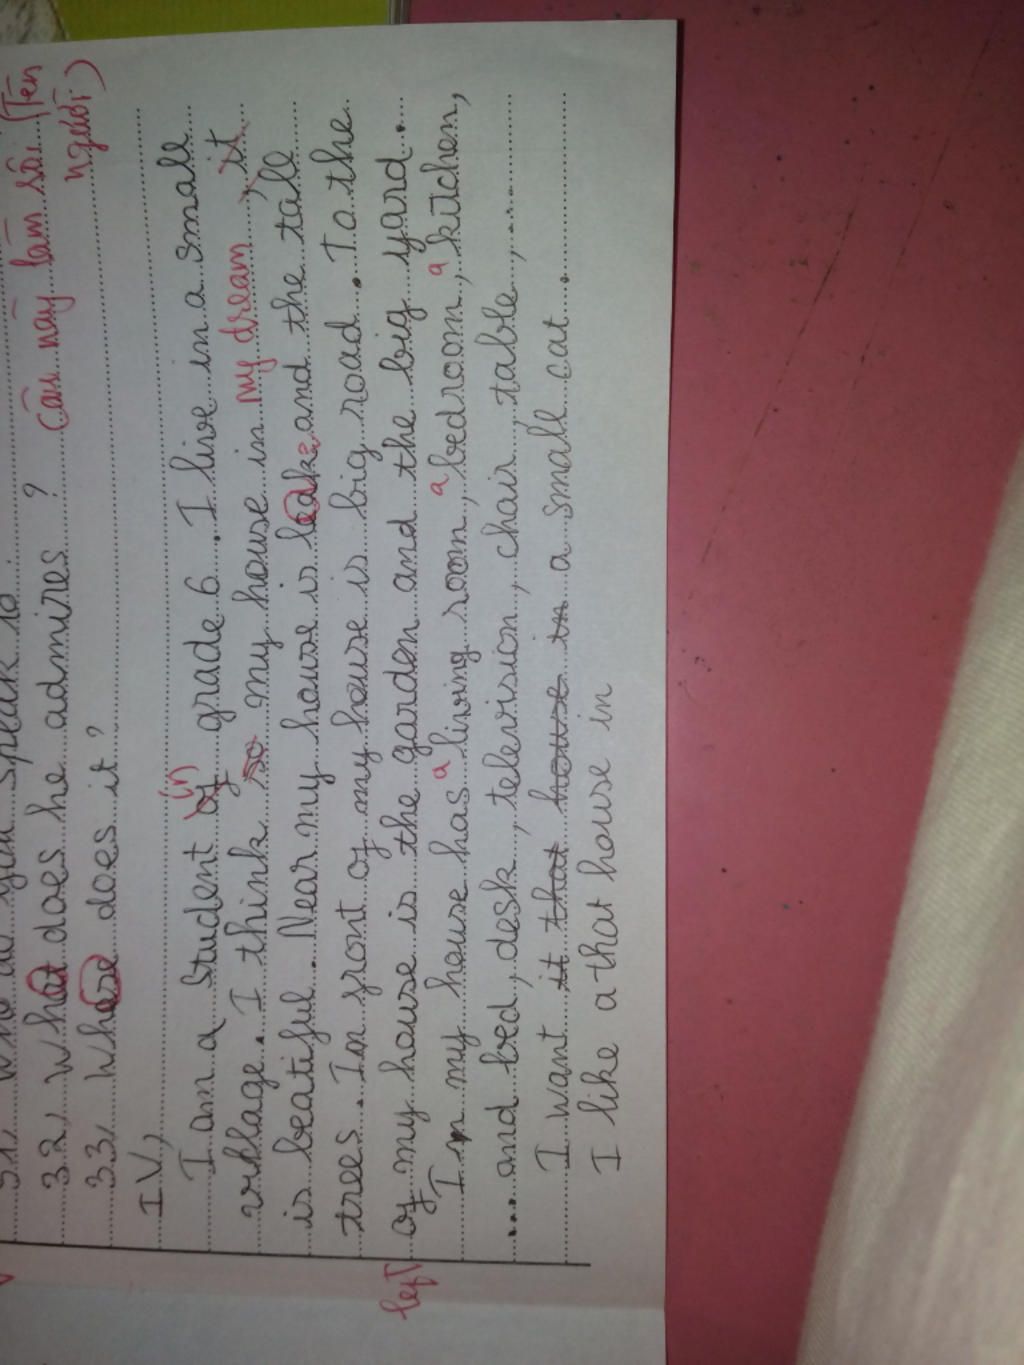 3.1, Who do you speak to
3.2, What does he admires ? câu này làm sai (Tên người)
3.3, Whose does it ?
IV,
I am a student of (in) grade 6 . I live in a small
village . I think so my house in my dream , it
is beatiful . Near my house is lake and the tall
trees . In front of my house is big road . To the
left of my house is the garden and the big yard .
In my house has a living room , a bedroom , a kitchen ,
... and bed , desk , television , chair , table , ...
I want it that house in a small cat .
I like a that house in